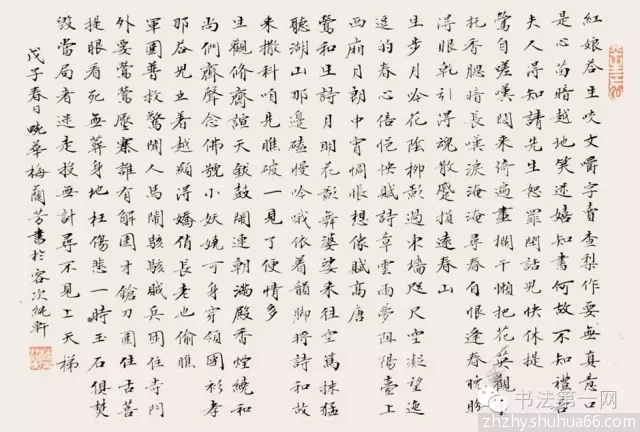 紅娘答生咬文嚼字賣查梨作耍無真意口
是心苗暗越地笑述嬉知書何故不知禮答
夫人得知請先生恕罪閑話兒快休提
鶯自嗟嘆閑來倚遍畫欄干懶把花英觀手
托香腮暗長嘆淚淹淹尋春自恨逢春晚盼
得眼乾引得魂散蹙損遠春山
生步月咏花陰柳影過東牆咫尺空凝望迤
逗的春心倍怏怏賦詩章雲雨夢阻陽臺上
西廂月朗中宵惆悵想像賦高唐
鶯和生詩月明花影舞婆娑來往空萬抹猛
聽湖山那邊磕慢吟哦依着韻腳將詩和故
來撒科咱先瞧破一見了便情多
生觀修齋諠天鈸鼓鬧連朝滿殿香煙繞和
尚們齋聲念佛號小妖嬈可身穿領團衫孝
那答兒立着越顯得嬌俏長老也偷瞧
軍圍普救驚聞人馬鬧駭駭賊兵困住寺門
外要鶯鶯壓寨誰有解圍才鎗刀圍住古菩
提眼看死無葬身地枉傷悲一時玉石俱焚
毀當局者迷走投無計尋不見上天梯
戊子春日畹華梅蘭芳書於容次純軒
书法第一网
zhzhy.shuhua66.com